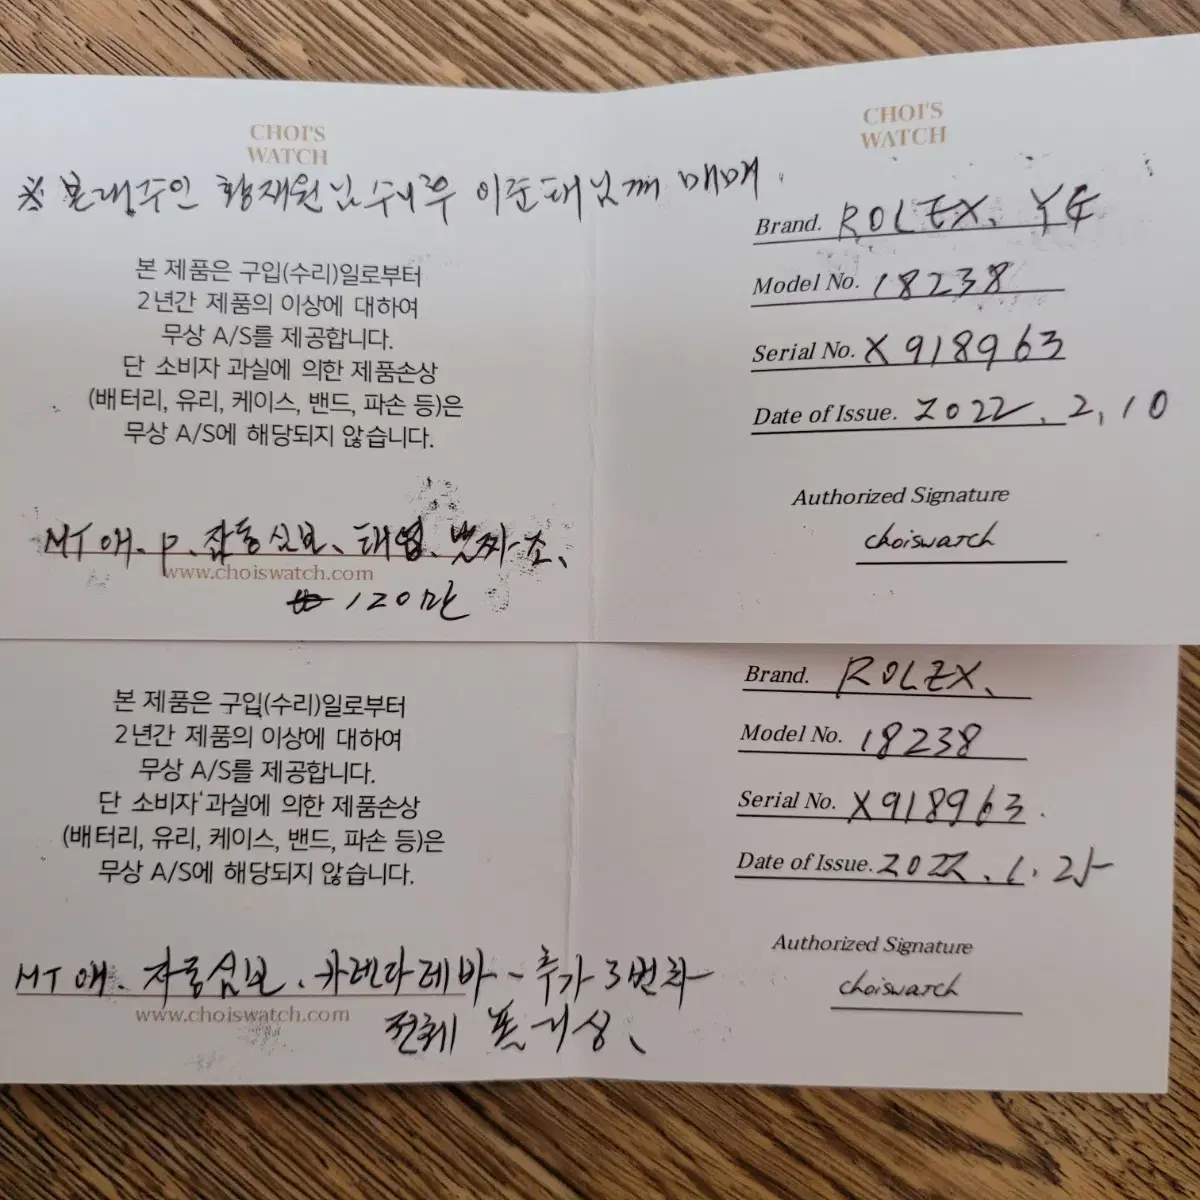 CHOI'S
WATCH
※ 본래주인 황재원님 수리후 이준태님께 매매.
본 제품은 구입(수리)일로부터
2년간 제품의 이상에 대하여
무상 A/S를 제공합니다.
단 소비자 과실에 의한 제품손상
(배터리, 유리, 케이스, 밴드, 파손 등)은
무상 A/S에 해당되지 않습니다.
MT 애. P. 자동심보. 태엽.
www.choiswatch.com
120만
CHOI'S
WATCH
Brand. ROLEX. YG
Model No. 18238
Serial No. X918963
Date of Issue. 2022. 2, 10
Authorized Signature
choiswatch
본 제품은 구입(수리)일로부터
2년간 제품의 이상에 대하여
무상 A/S를 제공합니다.
단 소비자 과실에 의한 제품손상
(배터리, 유리, 케이스, 밴드, 파손 등)은
무상 A/S에 해당되지 않습니다.
MT 애. 자동심보. 카렌다레바 - 추가 3번차
www.choiswatch.com
전체
Brand. ROLEX.
Model No. 18238
Serial No. X918963.
Date of Issue. 2022. 1. 25
Authorized Signature
choiswatch